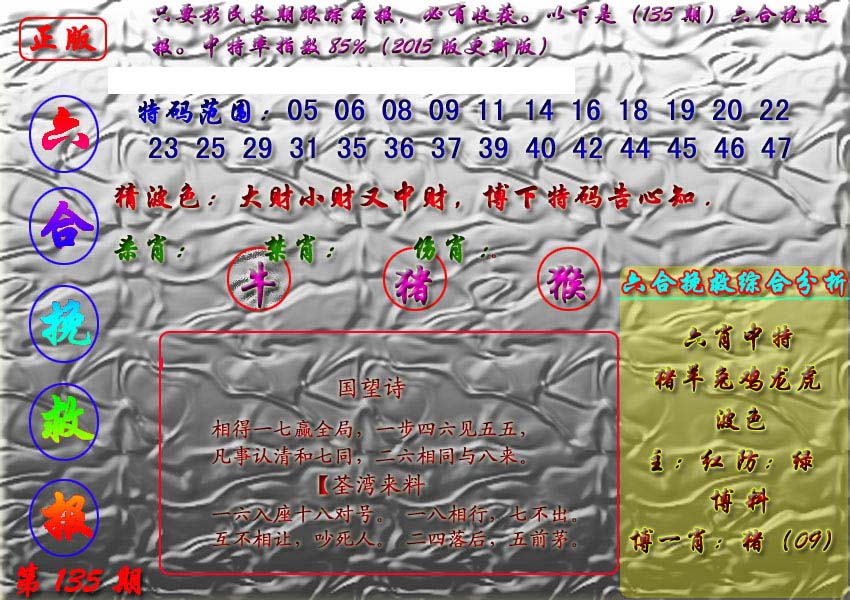 正版
只要彩民长期跟踪本报，必有收获。以下是（135 期）六合挽救
报。中特率指数 85%（2015 版更新版）
六合挽救报
第 135 期
特码范围：05 06 08 09 11 14 16 18 19 20 22
23 25 29 31 35 36 37 39 40 42 44 45 46 47
猜波色：大财小财又中财，博下特码告心知.
杀肖：牛 禁肖：猪 伤肖：猴
国望诗
相得一七赢全局，一步四六见五五，
凡事认清和七同，二六相同与八来。
【荃湾来料
一六入座十八对号。 一八相行，七不出。
互不相让，吵死人。 二四落后，五前茅。
六合挽救综合分析
六肖中特
猪羊兔鸡龙虎
波色
主：红防：绿
博料
博一肖：猪（09）